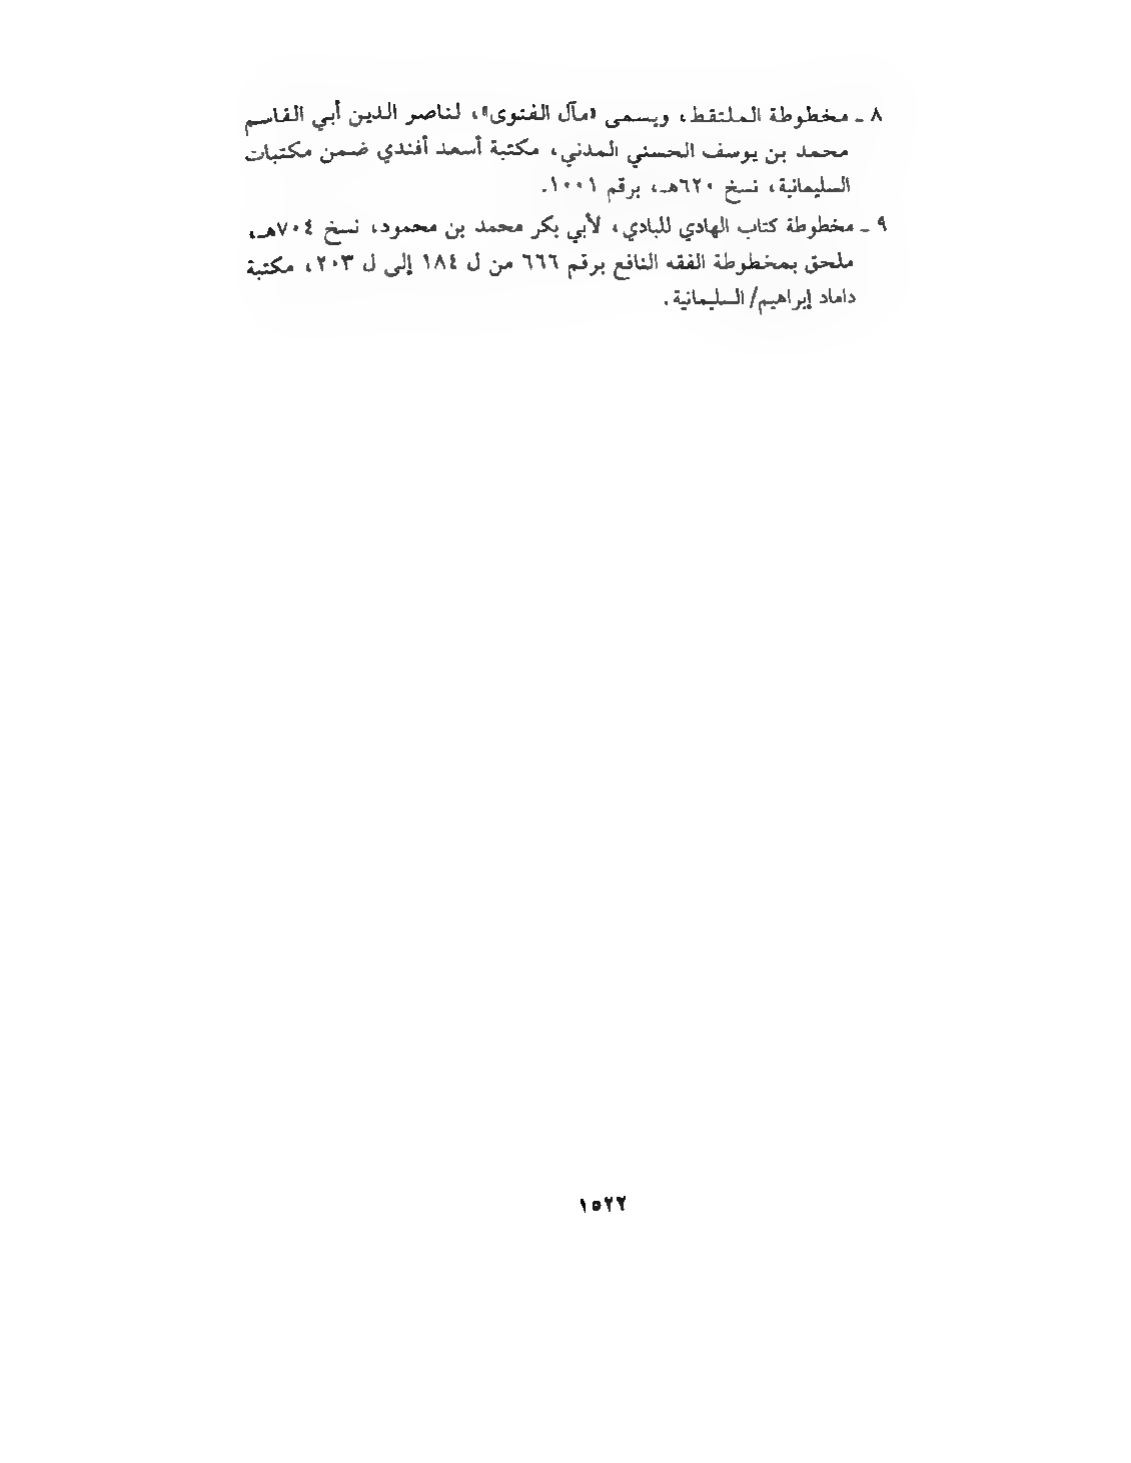 ٨ ـ مخطوطة الملتقط، ويسمى «مآل الفتوى»، لناصر الدين أبي القاسم
محمد بن يوسف الحسني المدني، مكتبة أسعد أفندي ضمن مكتبات
السليمانية، نسخ ٦٢٠هـ، برقم ١٠٠١.
٩ ـ مخطوطة كتاب الهادي للبادي، لأبي بكر محمد بن محمود، نسخ ٧٠٤هـ،
ملحق بمخطوطة الفقه النافع برقم ٦٦٦ من ل ١٨٤ إلى ل ٢٠٣، مكتبة
داماد إبراهيم/ السليمانية.
١٥٢٢